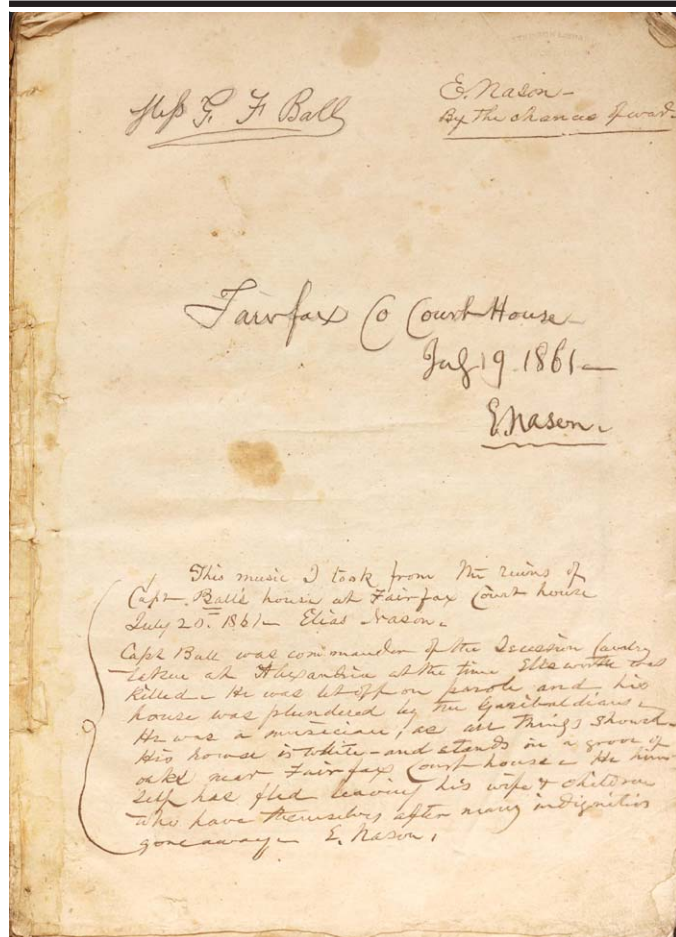 Miss G. F Ball
E. Nason -
By the chances of war.
Fairfax Co Court House
July 19. 1861 -
E. Nason.
This music I took from the ruins of
Capt. Ball's house at Fairfax Court house
July 20. 1861 - Elias Nason.
Capt Ball was commander of the Secession Cavalry
taken at Alexandria at the time Ellsworth was
killed - He was let off on parole and his
house was plundered by the Garibaldians -
He was a musician, as all things showed -
His house is white - and stands in a grove of
oaks near Fairfax Court house - He him-
self has fled leaving his wife & children
who have themselves after many indignities
gone away - E. Nason.